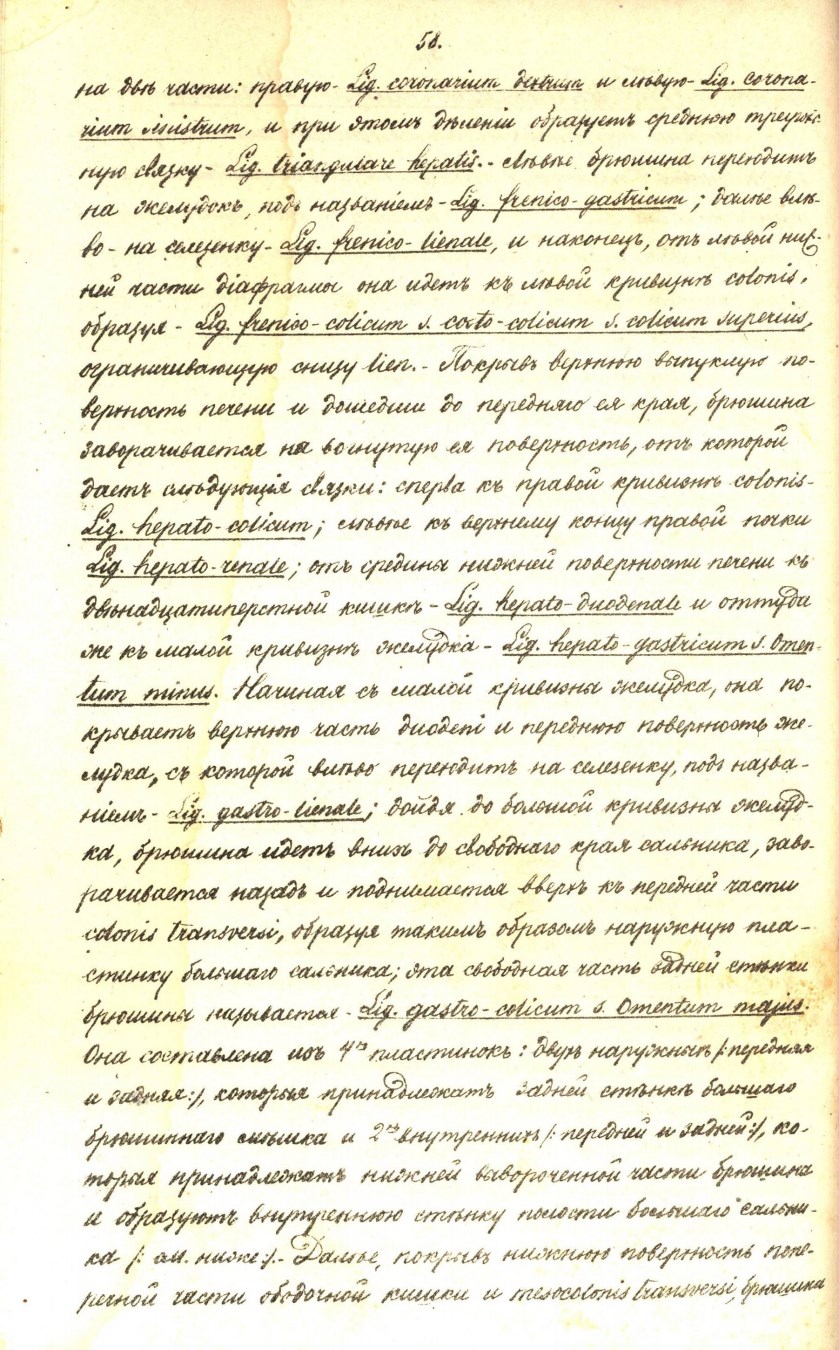 58.
на двѣ части: правую - Lig. coronarium dextrum и лѣвую - Lig. corona-
rium sinistrum, и при этомъ дѣленіи образуетъ среднюю треуголь-
ную связку - Lig. triangulare hepatis. - Лѣвѣе брюшина переходитъ
на желудокъ, подъ названіемъ - Lig. frenico-gastricum; далѣе влѣ-
во - на селезенку - Lig. frenico-lienale, и наконецъ, отъ лѣвой ниж-
ней части діафрагмы она идетъ къ лѣвой кривизнѣ colonis,
образуя - Lig. frenico-colicum s. costo-colicum s. colicum superius,
ограничивающую снизу lien. - Покрывъ верхнюю выпуклую по-
верхность печени и дошедши до передняго ея края, брюшина
заворачивается на вогнутую ея поверхность, отъ которой
даетъ слѣдующія связки: сперва къ правой кривизнѣ colonis -
Lig. hepato-colicum; лѣвѣе къ верхнему концу правой почки
Lig. hepato-renale; отъ средины нижней поверхности печени къ
двѣнадцатиперстной кишкѣ - Lig. hepato-duodenale и оттуда
же къ малой кривизнѣ желудка - Lig. hepato-gastricum s. Omen-
tum minus. Начиная съ малой кривизны желудка, она по-
крываетъ верхнюю часть duodeni и переднюю поверхность же-
лудка, съ которой влѣво переходитъ на селезенку, подъ назва-
ніемъ - Lig. gastro-lienale; дойдя до большой кривизны желуд-
ка, брюшина идетъ внизъ до свободнаго края сальника, заво-
рачивается назадъ и поднимается вверхъ къ передней части
colonis transversi, образуя такимъ образомъ наружную пла-
стинку большаго сальника; эта свободная часть задней стѣнки
брюшины называется - Lig. gastro-colicum s. Omentum majus.
Она составлена изъ 4хъ пластинокъ: двухъ наружныхъ /: передняя
и задняя :/, которыя принадлежатъ задней стѣнкѣ большаго
брюшиннаго мѣшка и 2хъ внутреннихъ /: передней и задней :/, ко-
торыя принадлежатъ нижней вывороченной части брюшины
и образуютъ внутреннюю стѣнку полости большаго сальни-
ка /: см. ниже :/. - Далѣе, покрывъ нижнюю поверхность попе-
речной части ободочной кишки и mesocolonis transversi, брюшина